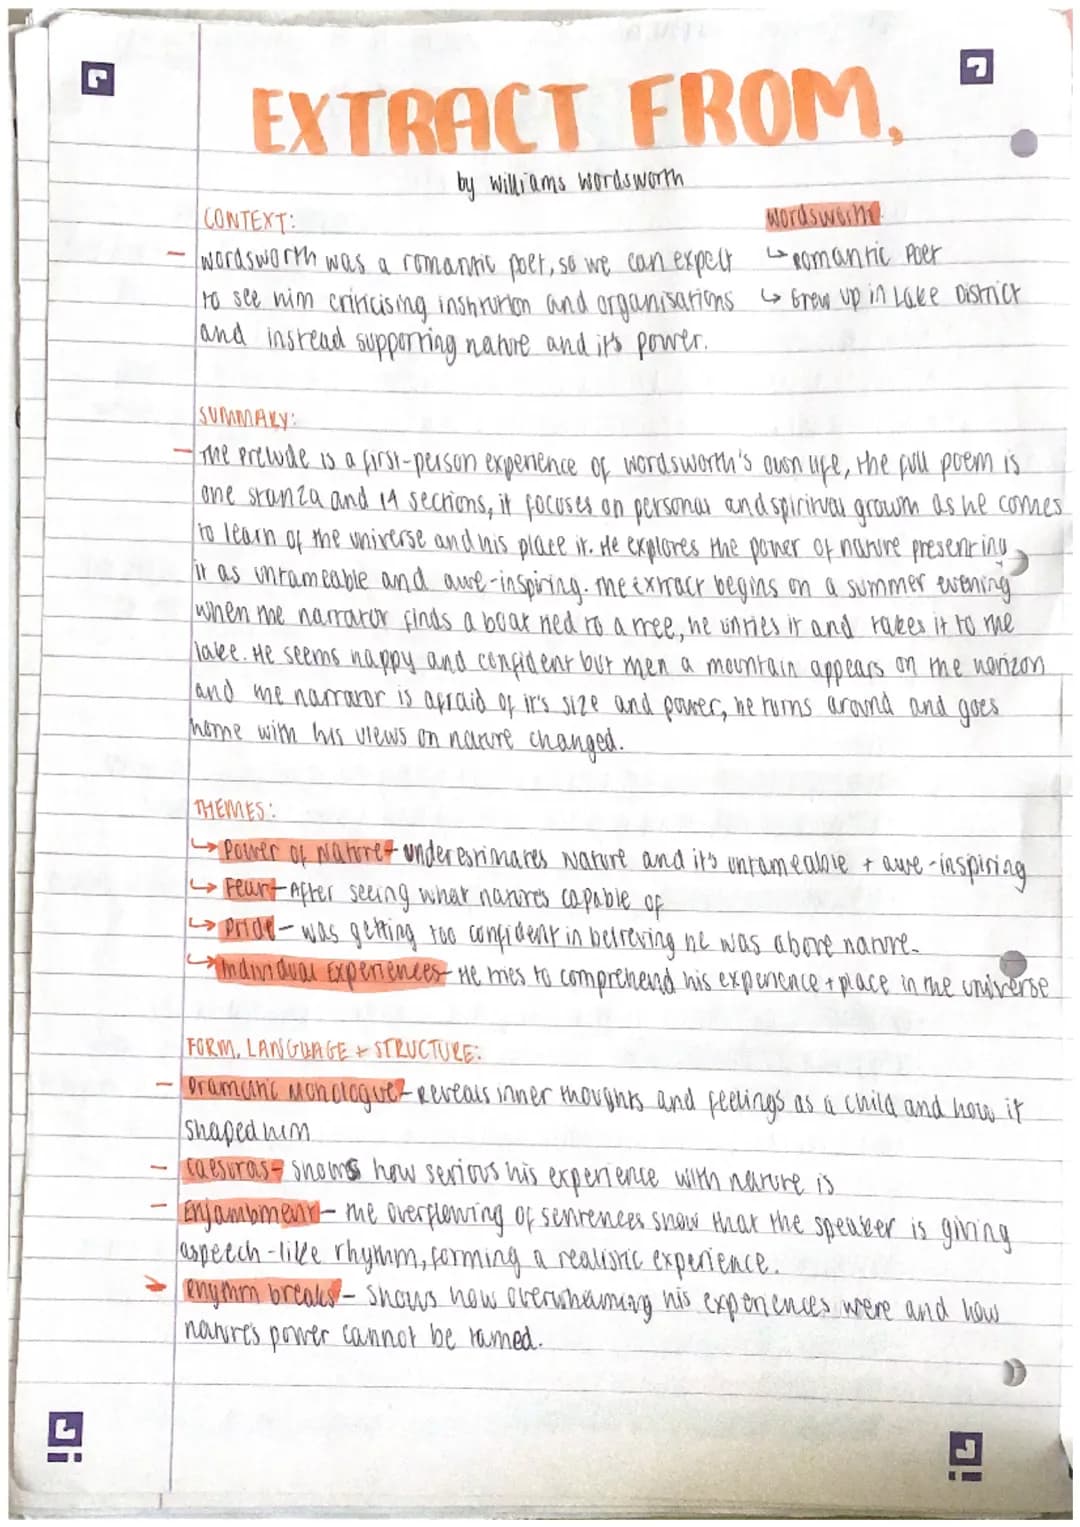 EXTRACT FROM,
by Williams Wordsworth
CONTEXT:
- Wordsworth was a romantic poet, so we can expect
to see him criticising institurion and organisations
and instead supporting nature and it's power.
Wordsworth
↳ Romantic Poet
↳ Grew up in Lake District
SUMMARY:
- The Prelude is a first-person experience of Wordsworth's own life, the full poem is
one stanza and 14 sections, it focuses on personal and spiritual growth as he comes
to learn of the universe and his place it. He explores the power of nature presenting
it as untameable and awe-inspiring. The extract begins on a summer evening
when the narrator finds a boat tied to a tree, he unties it and takes it to the
lake. He seems happy and confident but then a mountain appears on the horizon
and the narrator is afraid of it's size and power, he turns around and goes
home with his views on nature changed.
THEMES:
↳ Power of Nature - underestimates nature and it's untameable + awe-inspiring
↳ Fear - After seeing what nature's capable of
↳ Pride - was getting too confident in believing he was above nature.
↳ Individual Experiences - He tries to comprehend his experience + place in the universe
FORM, LANGUAGE + STRUCTURE:
- Dramatic Monologue - Reveals inner thoughts and feelings as a child and how it
shaped him
- Caesuras - shows how serious his experience with nature is
- Enjambment - the overflowing of sentences show that the speaker is giving
a speech-like rhythm, forming a realistic experience.
→ Rhythm breaks - shows how overwhelming his experiences were and how
nature's power cannot be tamed.